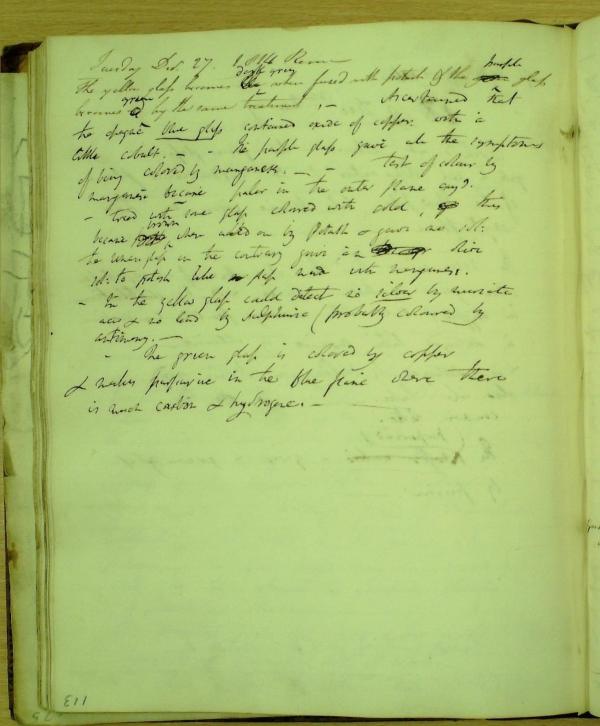 Tuesday Dec. 27. 1814 Rome
dark grey purple
The yellow glass becomes when fused with potash & the glass
green
becomes by the same treatment. — Ascertained that
the opaque blue glass contained oxide of copper with a
little cobalt. — — The purple glass gave all the symptoms
of being colored by manganese. — — test of colour by
manganese became paler in the outer flame
— tried with some glass colored with gold, this
brown
became when acted on by Potash & gave no sol:
the glass on the contrary gave an olive
sol: to potash like glass made with manganese.
— In the yellow glass could detect no silver by muriatic
acid & no lead by sulphuric (probably coloured by
antimony. —
— The green glass is colored by copper
& makes purpurine in the blue flame where there
is much carbon & hydrogene. —
113